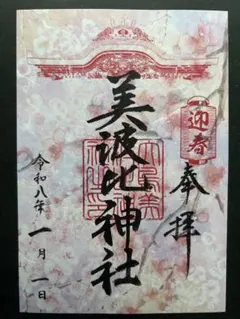 迎春
奉拝
美波比神社
令和八年
一月一日